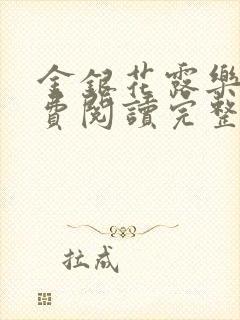 金銀花露樂
費閱讀完整
拉成